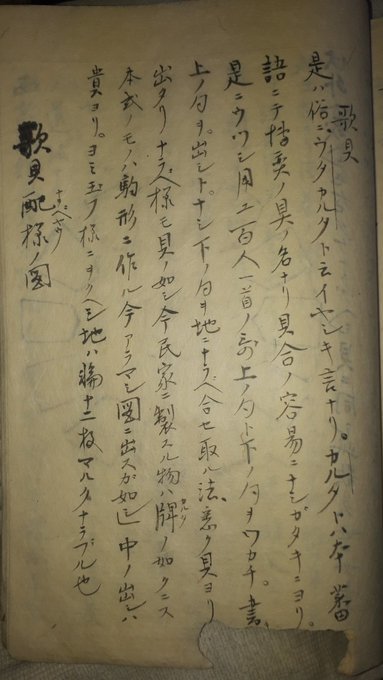 歌貝
是ハ俗ニウタカルタト云イヤシキ言ナリ。カルタトハ本蕃
語ニテ博奕ノ具ノ名ナリ貝合ノ容易ニナシガタキニヨリ。
是ニウツシ用ユ百人一首ノ哥上ノ句ト下ノ句ヲワカチ。書、
上ノ句ヲ。出シト。ナシ下ノ句ヲ地ニナラベ合セ取ル法、悉ク貝ヨリ
出タリナラベ様モ貝ノ如シ今民家ニ製スル物ハ牌カルタノ如クニス
本式ノモノハ駒形ニ作ル今アラマシ図ニ出スガ如シ中ノ出シハ
貴ヨリ。ヨミ玉フ様ニヲクヘシ地ハ十二枚マルクナラブル也
歌貝配様ナラベヤウノ図